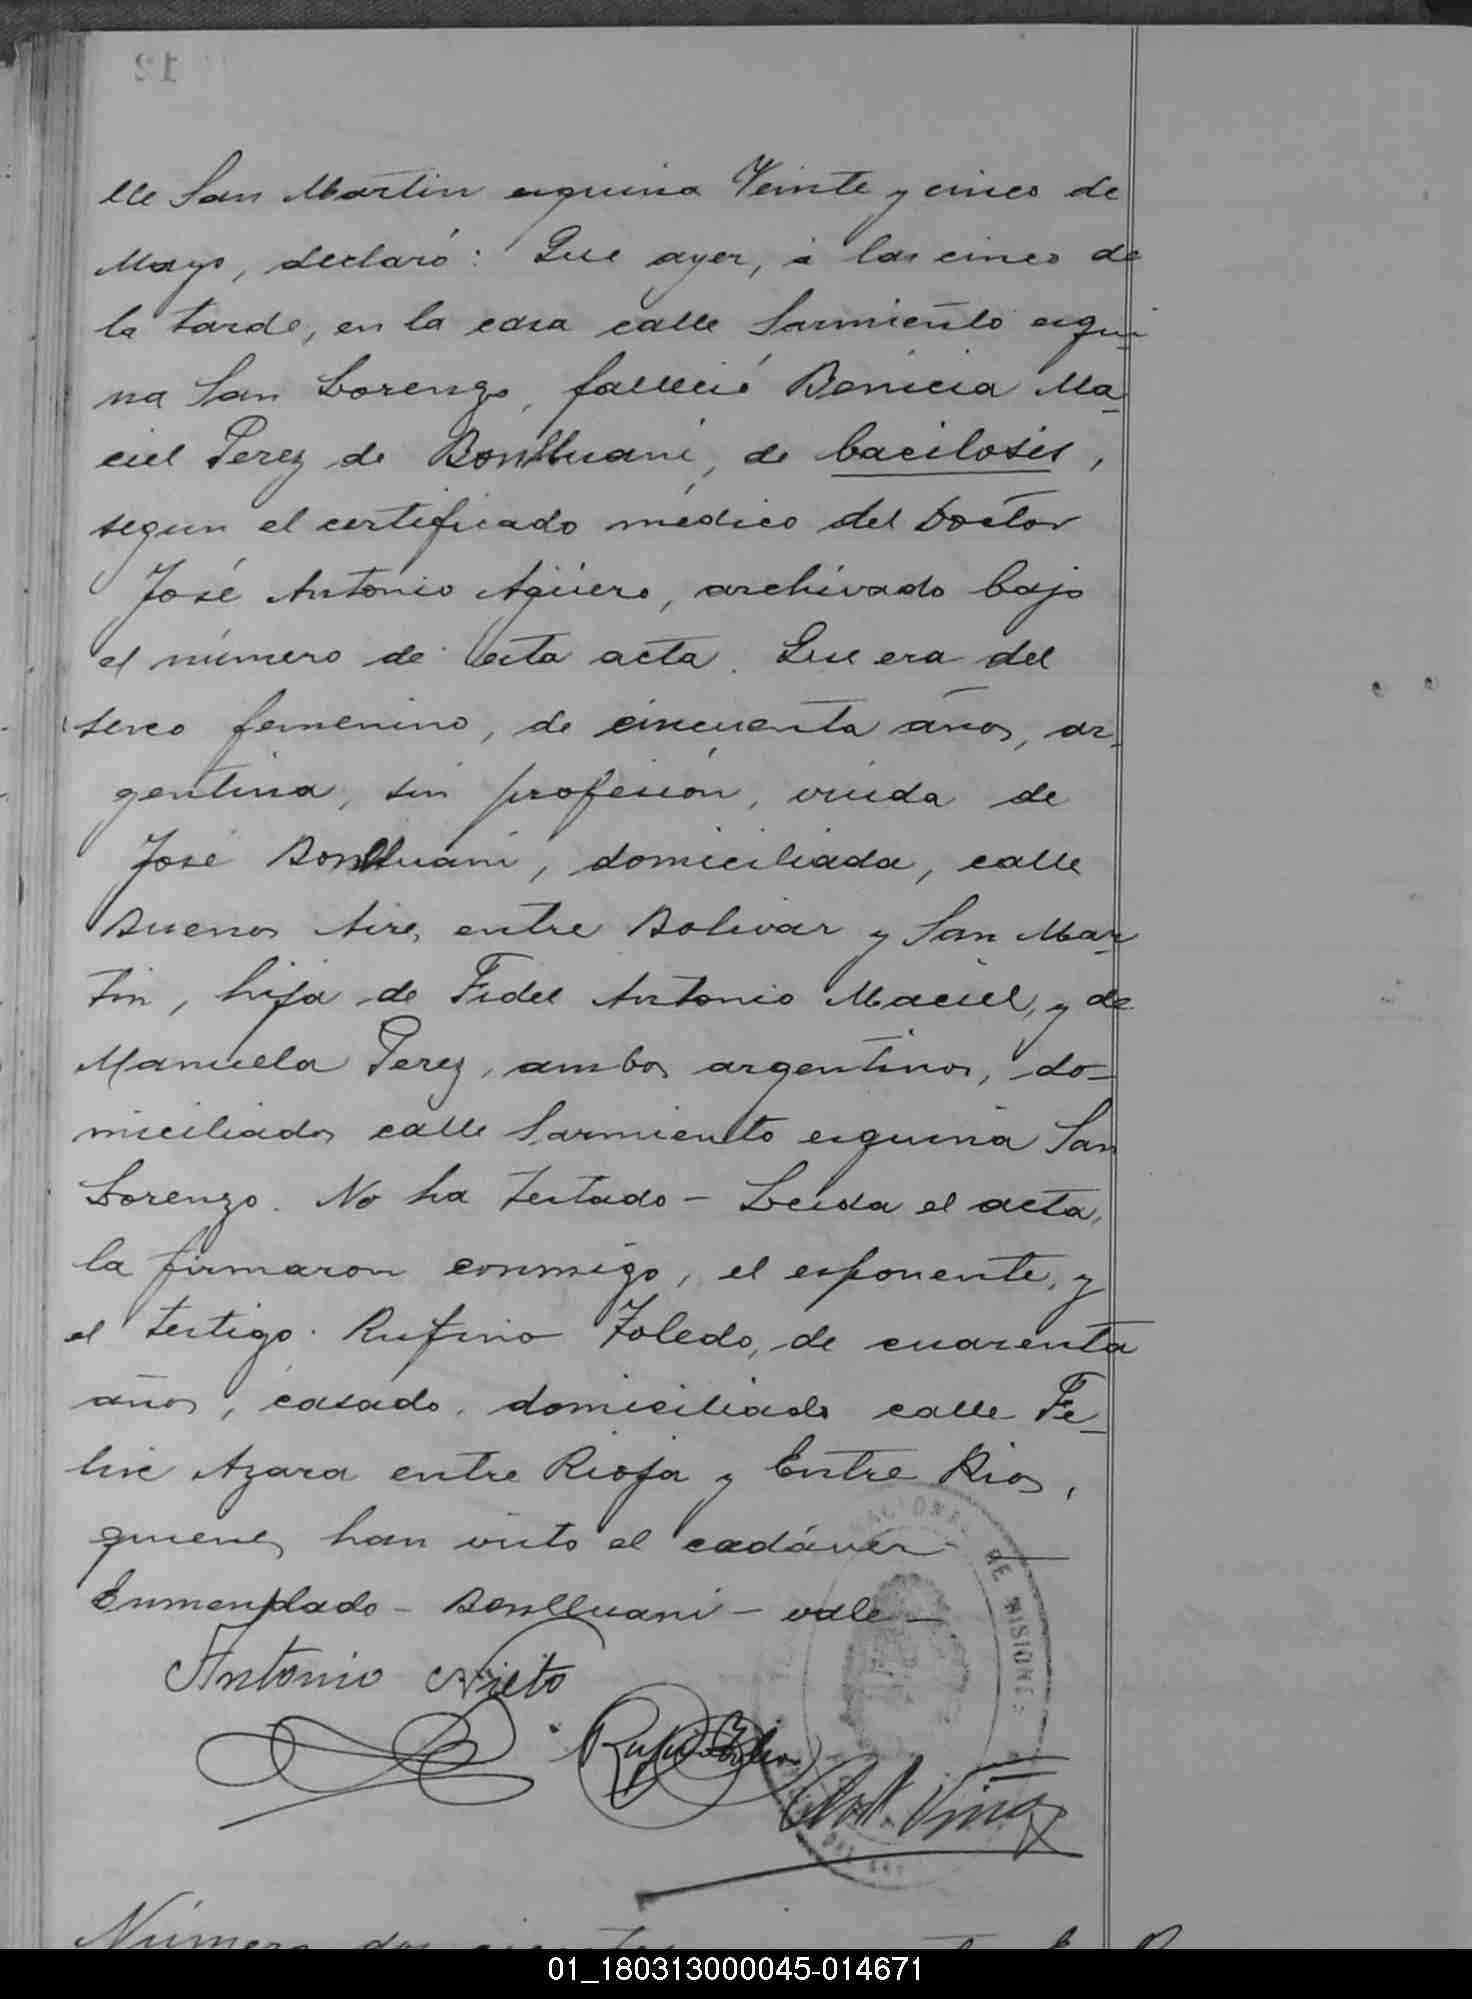 12
lle San Martin esquina Veinte y cinco de
Mayo, declaró: Que ayer, á las cinco de
la tarde, en la casa calle Sarmiento esqui-
na San Lorenzo, falleció Benicia Ma-
ciel Perez de Bonlluani, de bacilosis,
segun el certificado médico del Doctor
José Antonio Agüero, archivado bajo
el número de esta acta. Que era del
sexo femenino, de cincuenta años, ar-
gentina, sin profesión, viuda de
José Bonlluani, domiciliada, calle
Buenos Aires entre Bolivar y San Mar-
tin, hija de Fidel Antonio Maciel, y de
Manuela Perez, ambos argentinos, do-
miciliados calle Sarmiento esquina San
Lorenzo. No ha testado - Leida el acta,
la firmaron conmigo, el esponente, y
el testigo Rufino Toledo, de cuarenta
años, casado, domiciliado calle Fe-
liz Azara entre Rioja y Entre Rios,
quienes han visto el cadáver —
Enmendado - Bonlluani - vale -
NACIONAL DE MISIONES
Antonio Nieto
Rufino Toledo
Número
01_180313000045-014671